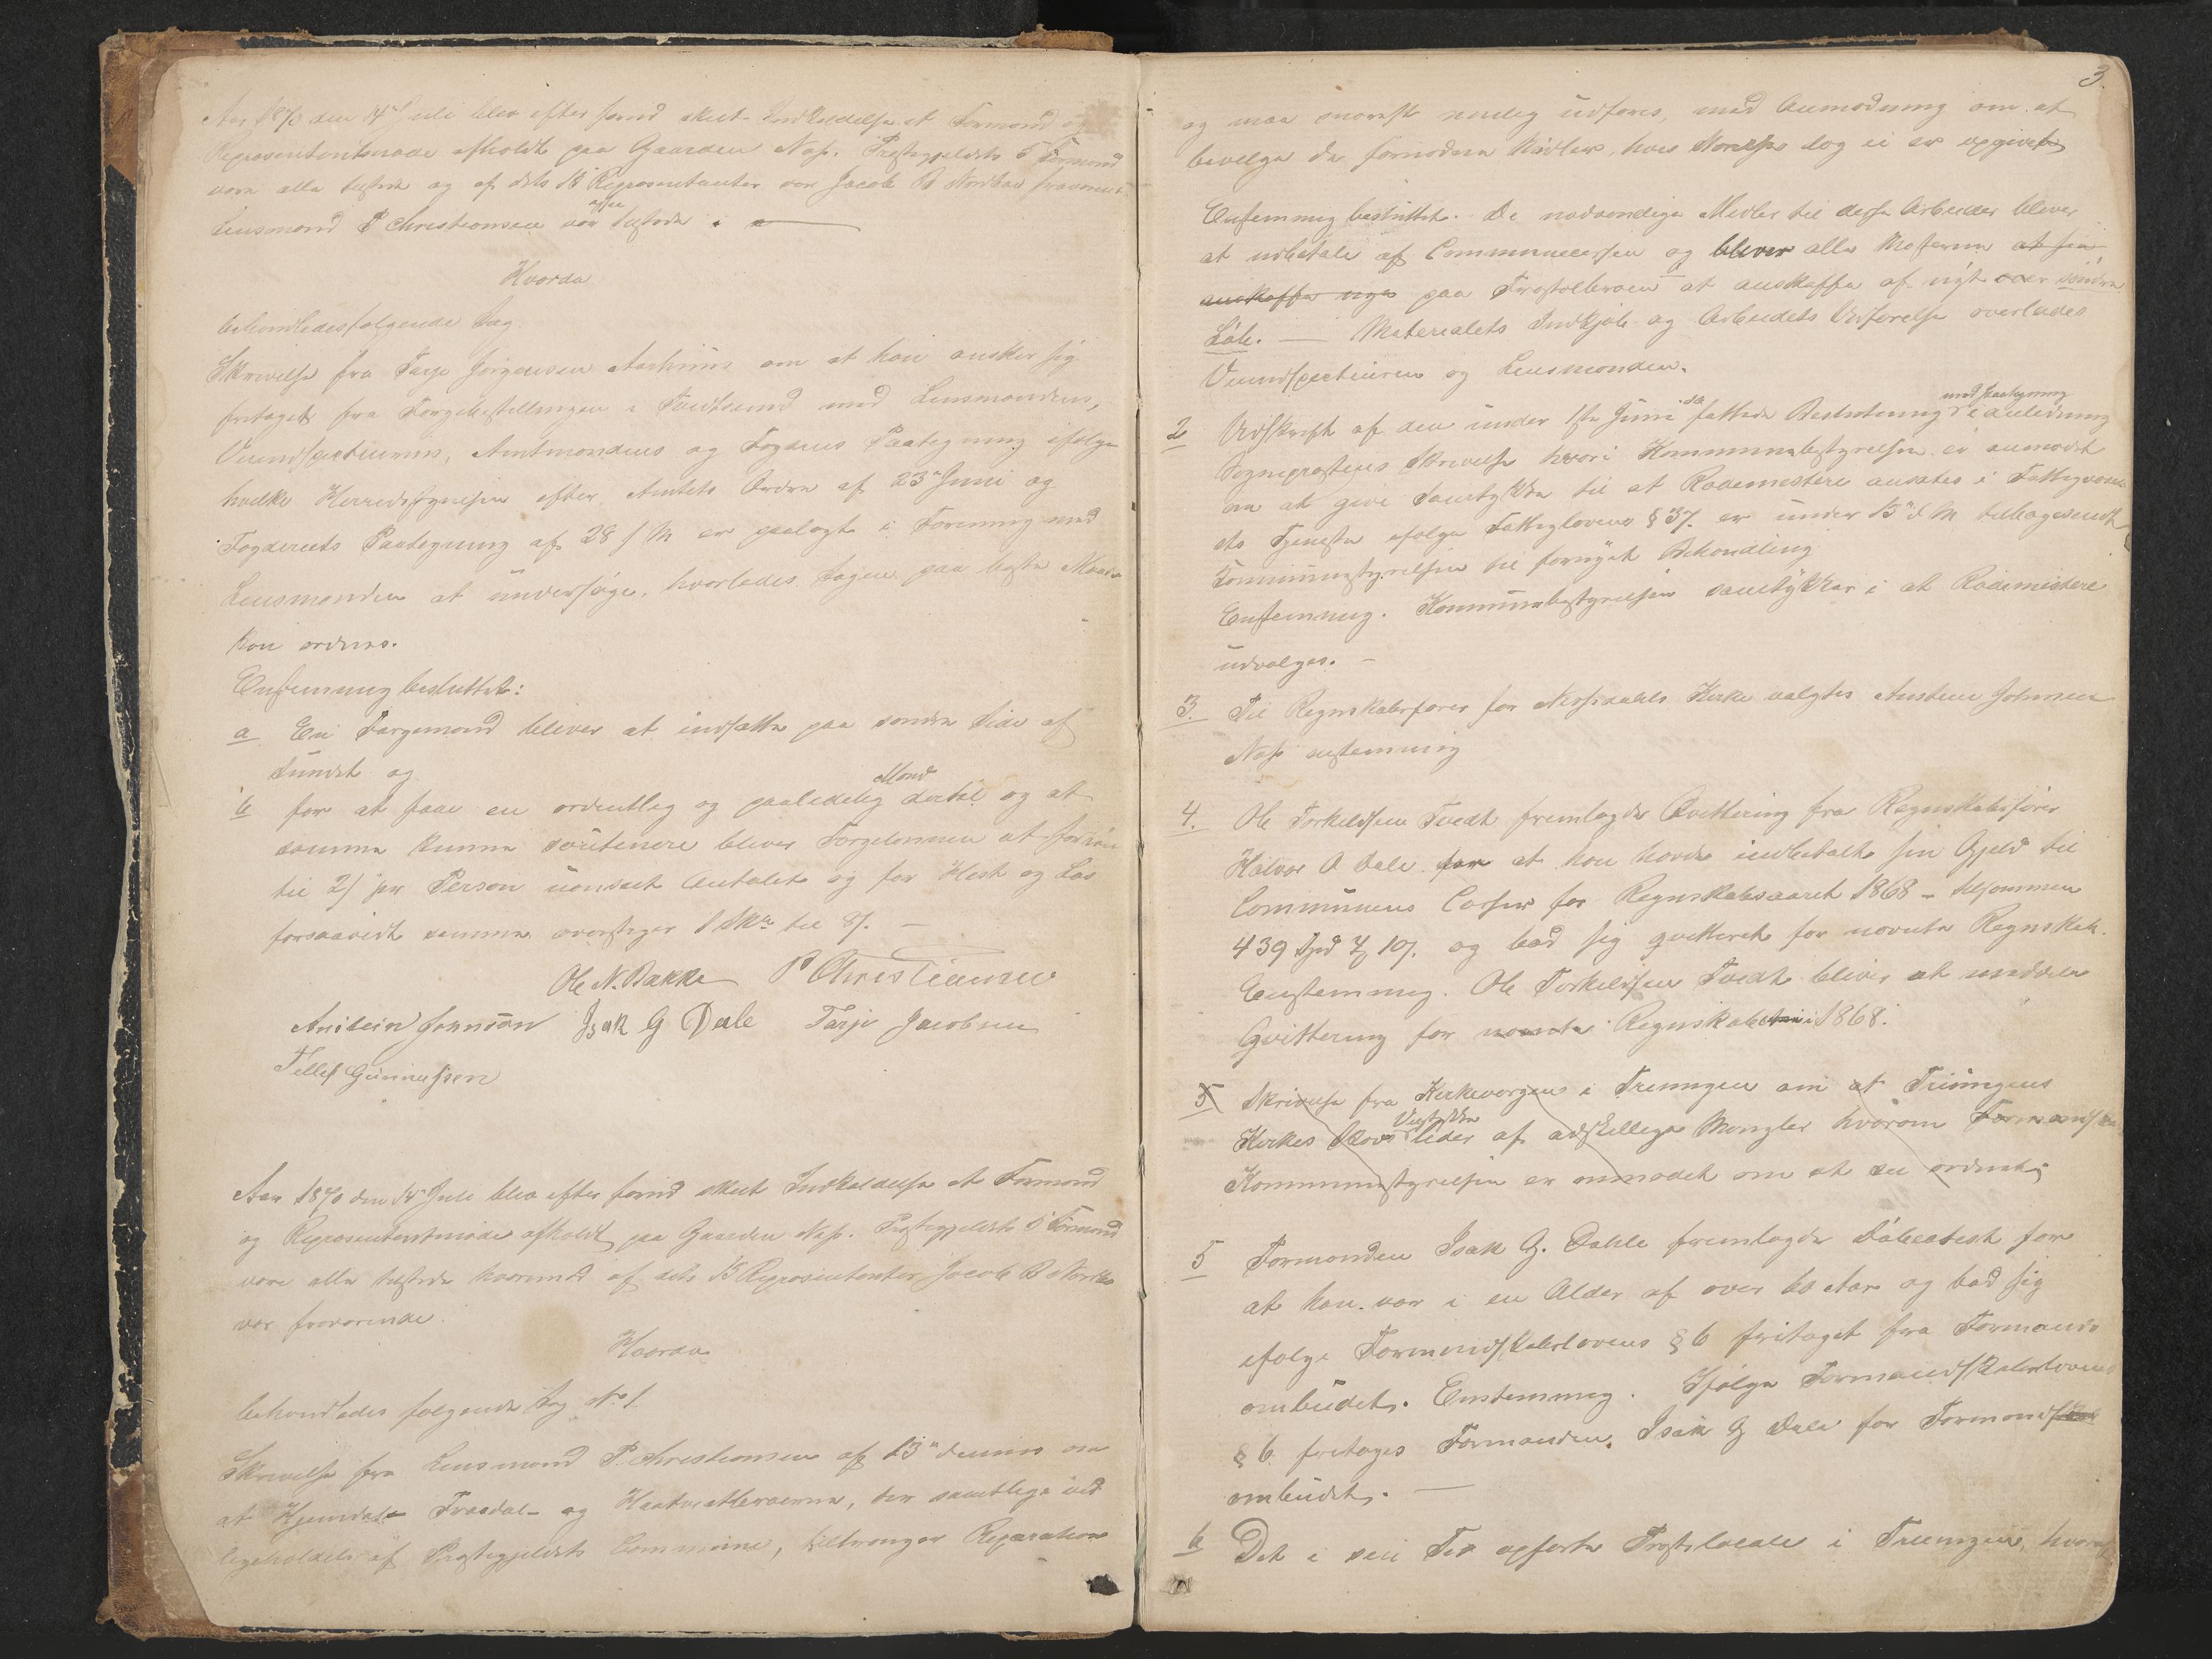 Aar 1870 den 14de Juli blev efter forud skeet Indkaldelse et Formand og
Repræsentantmøde afholdt paa Gaarden Næs. Præstegjeldets 5 Formænd
vare alle tilstede og af dets 15 Repræsentanter var Jacob B Nordbø fraværende
Lensmand P Christiansen var ogsaa tilstede.
Hvorda
behandledes følgende Sag
Skrivelse fra Tarje Jørgensen om at han ønsker sig
fritaget fra Færgebestillingen i Tveitsund med Lensmandens,
Veiinspecteurens, Amtmandens og Fogdens Paategning ifølge
hvilke Herredstyrelsen efter Amtets Ordre af 23de Juni og
Fogderiets Paategning af 28 s M er paalagt i Forening med
Lensmanden at undersøge, hvorledes Sagen paa bedste Maade
kan ordnes.
Enstemmig besluttet:
a En Færgemand bliver at indsætte paa søndre Side af
Sundet og
b for at faae en ordentlig og paalidelig Mand dertil og at
samme kunne soutenere bliver Færgelønnen at forhøie
til 2 s pr Person uanseet Antallet og for Hest og Læs
forsaavidt samme overstiger 1 Sk til 8 s. –
Ole N. Bakke P Christiansen
Anstein Johnson Isak G Dale Tarje Jacobsen
Tellef Gunnufsen
Aar 1870 den 14 Juli blev efter forud skeet Indkaldelse et Formand
og Repræsentantmøde afholdt paa Gaarden Næs. Præstegjeldets 5 Formænd
vare alle tilstede hvorimod af dets 15 Repræsentanter Jacob B Nordbø
var fraværende.
Hvorda
behandledes følgende Sag No 1.
Skrivelse fra Lensmand P. Christiansen af 13de dennes om
at Hjemdal- Fraadal- og broerne, der samtlige ved
ligeholdes af Præstegjeldets Commune, tiltrænger Reparation
3.
og maa snarest mulig udføres, med Anmodning om at
bevilge de fornødne Midler, hvis Størrelse dog ei er opgivet
Enstemmig besluttet. De nødvendige Midler til disse Arbeider bliver
at udbetale af Communecassen og bliver alle Masterne at
anskaffe nye paa broen at anskaffe af nyt over søndre
Løb. — Materialets Indkjøb og Arbeidets Udførelse overlades
Veiinspecteuren og Lensmanden.
2 Udskrift af den under 1ste Juni d A fattede Beslutning med Paategning i Anledning
Sognepræstens Skrivelse hvori Kommunebestyrelsen er anmodet
om at give Samtykke til at Rodemestere ansættes i Fattigvæse
ets Tjeneste ifølge Fattiglovens § 37. er under 15de d M tilbagesendt
Kommunestyrelsen til fornyet Behandling
Enstemmig. Kommunebestyrelsen samtykker i at Rodemestere
udvælges. –
3. Til Regnskabsfører for Nissedahls Kirke valgtes Anstein Johnsen
Næs enstemmig
4. Ole Torkeldsen Tvedt fremlagde Qvittering fra Regnskabsfører
Halvor O Dale for at han havde indbetalt sin Gjeld til
Communens Casse for Regnskabsaaret 1868 – tilsammen
439 Spd 4 10 s. og bad sig qvitteret for nævnte Regnskab.
Enstemmig. Ole Torkeldsen Tvedt bliver at meddele
Qvittering for nævnte Regnskab 1868.
5 Skrivelse fra Kirkeværgen i Treungen om at Treungens
Kirkes Skov lider af adskillige Mangler hvorom
Kommunestyrelsen er anmodet om at see ordnet,
5 Formanden Isak G. Dahle fremlagde Døbeattest for
at han var i en Alder af over 60 Aar og bad sig
ifølge Formandskabslovens § 6 fritaget fra Formands
ombudet. Enstemmig. Ifølge Formandskabslovens
§ 6 fritages Formanden Isak G Dale for Formands
ombudet. —
6 Det i sin Tid opførte Præstelocale i Treungen, hvoraf